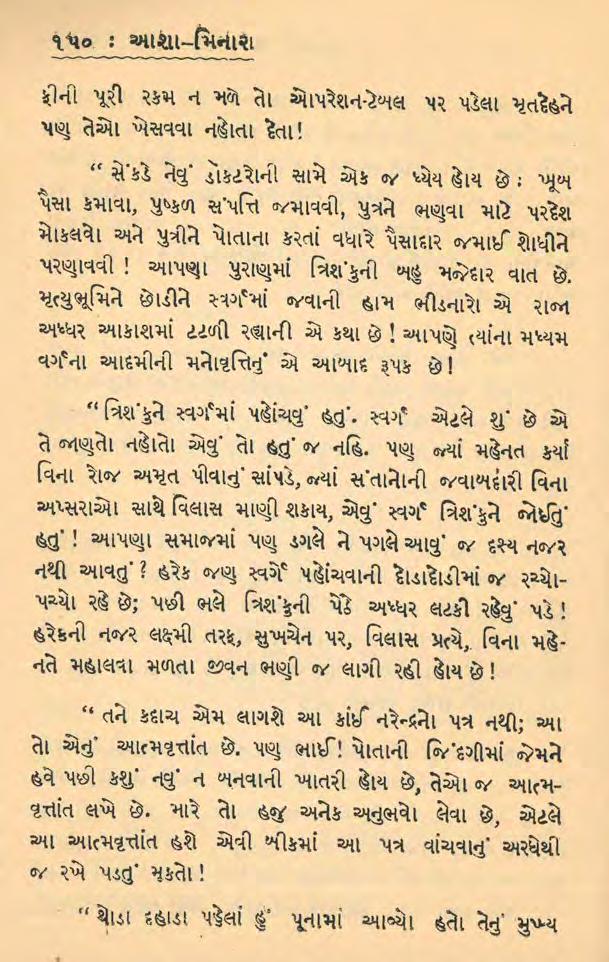 ૧૫૦ : આશા–મિનારા
ફીની પૂરી રકમ ન મળે તો ઓપરેશન-ટેબલ પર પડેલા મૃતદેહને
પણ તેઓ ખેસવવા નહોતા દેતા!
“ સેંકડે નેવું ડૉકટરોની સામે એક જ ધ્યેય હોય છે : ખૂબ
પૈસા કમાવા, પુષ્કળ સંપત્તિ જમાવવી, પુત્રને ભણવા માટે પરદેશ
મોકલવો અને પુત્રીને પોતાના કરતાં વધારે પૈસાદાર જમાઈ શોધીને
પરણાવવી ! આપણા પુરાણમાં ત્રિશંકુની બહુ મજેદાર વાત છે.
મૃત્યુભૂમિને છોડીને સ્વર્ગમાં જવાની હામ ભીડનારો એ રાજા
અધ્ધર આકાશમાં ટટળી રહ્યાની એ કથા છે ! આપણે ત્યાંના મધ્યમ
વર્ગના આદમીની મનોવૃત્તિનું એ આબાદ રૂપક છે!
“ ત્રિશંકુને સ્વર્ગમાં પહોંચવું હતું. સ્વર્ગ એટલે શું છે એ
તે જાણતો નહોતો એવું તો હતું જ નહિ. પણ જ્યાં મહેનત કર્યા
વિના રોજ અમૃત પીવાનું સાંપડે, જ્યાં સંતાનોની જવાબદારી વિના
અપ્સરાઓ સાથે વિલાસ માણી શકાય, એવું સ્વર્ગ ત્રિશંકુને જોઈતું
હતું ! આપણા સમાજમાં પણ ડગલે ને પગલે આવું જ દૃશ્ય નજર
નથી આવતું ? હરેક જણ સ્વર્ગે પહોંચવાની દોડાદોડીમાં જ રચ્યો-
પચ્યો રહે છે; પછી ભલે ત્રિશંકુની પેઠે અધ્ધર લટકી રહેવું પડે !
હરેકની નજર લક્ષ્મી તરફ, સુખચેન પર, વિલાસ પ્રત્યે, વિના મહે-
નતે મહાલવા મળતા જીવન ભણી જ લાગી રહી હોય છે!
“ તને કદાચ એમ લાગશે આ કાંઈ નરેન્દ્રનો પત્ર નથી; આ
તો એનું આત્મવૃત્તાંત છે. પણ ભાઈ! પોતાની જિંદગીમાં જેમને
હવે પછી કશું નવું ન બનવાની ખાતરી હોય છે, તેઓ જ આત્મ-
વૃત્તાંત લખે છે. મારે તો હજુ અનેક અનુભવો લેવા છે, એટલે
આ આત્મવૃત્તાંત હશે એવી બીકમાં આ પત્ર વાંચવાનું અરધેથી
જ રખે પડતું મૂકતો!
“ થોડા દહાડા પહેલાં હું પૂનામાં આવ્યો હતો તેનું મુખ્ય